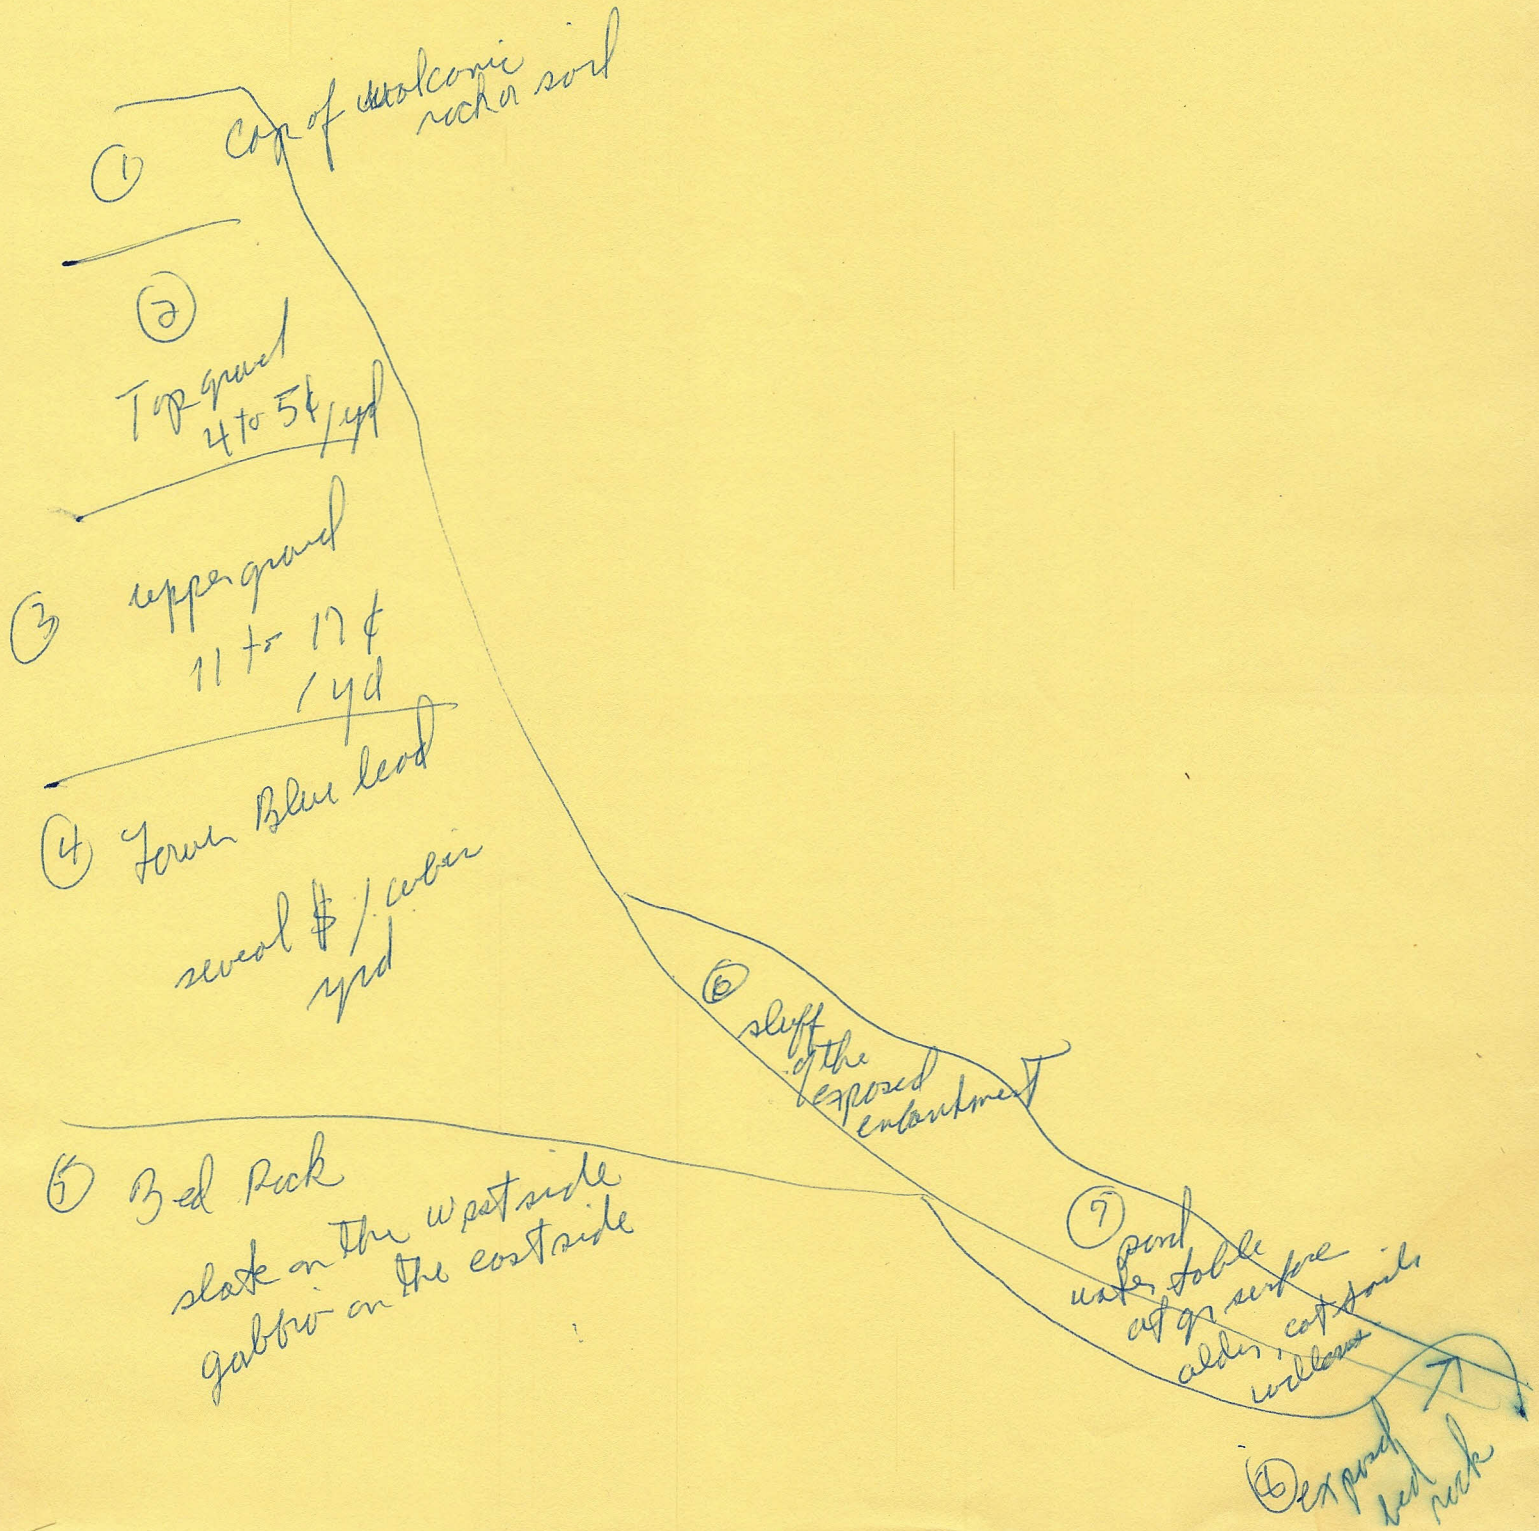 ① Cap of volcanic
rock or soil
②
Top gravel
4 to 5¢/yd
③ upper gravel
11 to 17 ¢
/yd
④ Lower Blue lead
several $ / cubic
yrd
⑤ Bed Rock
slate on the west side
gabbro on the east side
⑥
sluff
of the
exposed
enbankment
⑦
pond
water table
at gr surface
alder, cat tails
willows
exposed
bed
rock